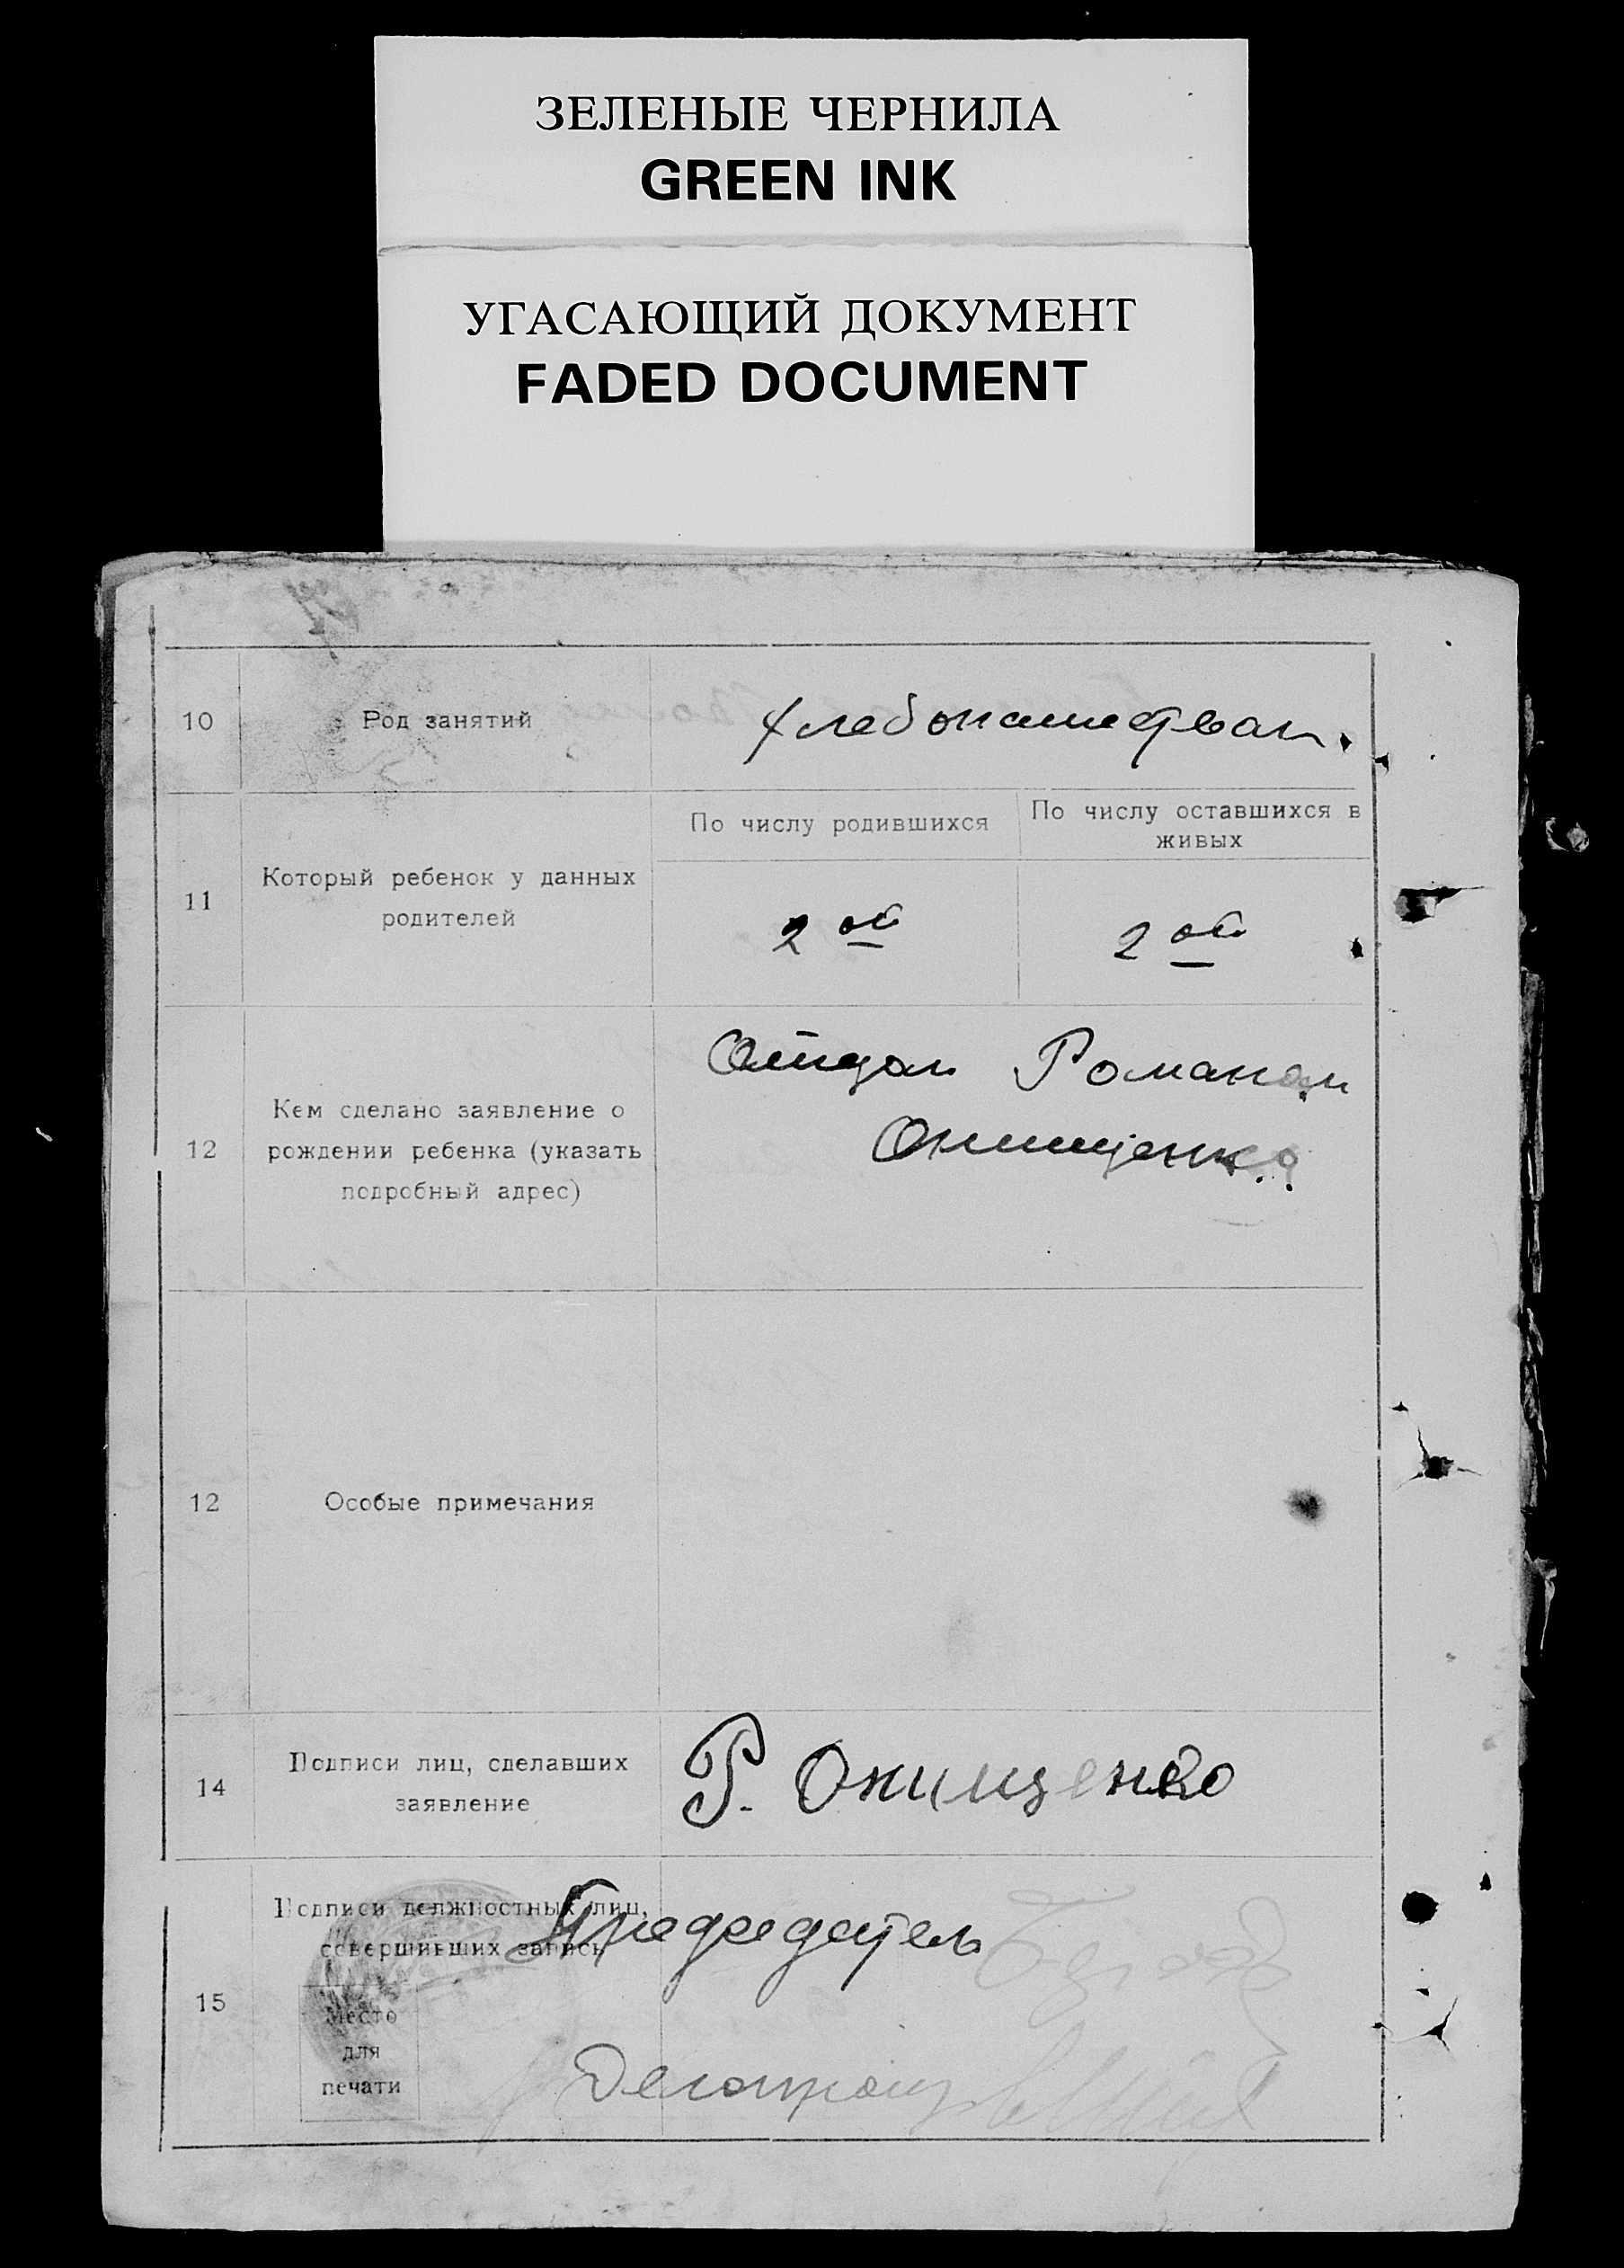 ЗЕЛЕНЫЕ ЧЕРНИЛА
GREEN INK
УГАСАЮЩИЙ ДОКУМЕНТ
FADED DOCUMENT
10 Род занятий
11 Который ребенок у данных
родителей
По числу родившихся
По числу оставшихся в
живых
2 ой
2 ой
12 Кем сделано заявление о
рождении ребенка (указать
подробный адрес)
Отцом Романом
Онищенко
12 Особые примечания
14 Подписи лиц, сделавших
заявление
Р. Онищенко
15 Подписи должностных лиц,
совершивших запись
Председатель
Место
для
печати
Делопроиз